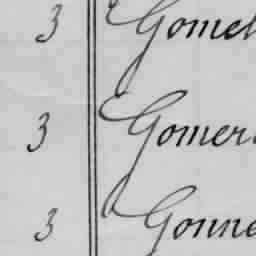 3 Gomel
3 Gomer
3 Gonne